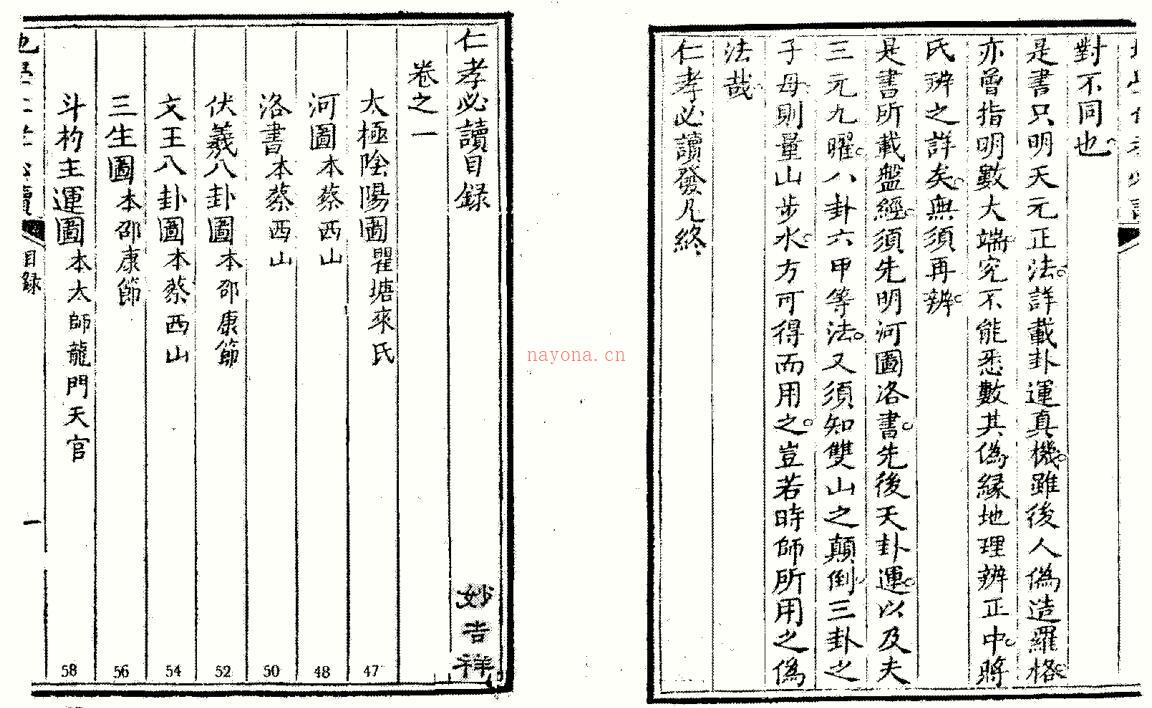 對不同也
是書只明天元正法詳載卦運真機雖後人偽造羅格
亦曾指明數大端究不能悉數其偽緣地理辨正中將
氏辨之詳矣無須再辨
是書所載盤經須先明河圖洛書先後天卦運以及夫
三元九曜八卦六甲等法又須知雙山之顛倒三卦之
子母則量山步水方可得而用之豈若時師所用之偽
法哉
仁孝必讀發凡終
仁孝必讀目録
妙吉祥
卷之一
太極陰陽圖瞿塘來氏 47
河圖本蔡西山 48
洛書本蔡西山 50
伏羲八卦圖本邵康節 52
文王八卦圖本蔡西山 54
三生圖本邵康節 56
斗杓主運圖本太師龍門天官 58
目録
一
nayona.cn